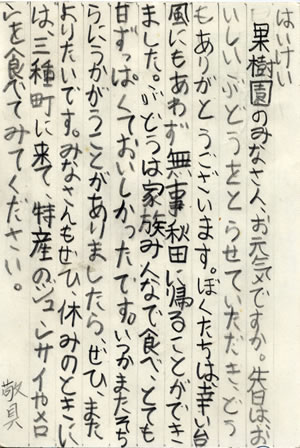 はいけい
果樹園のみなさん、お元気ですか。先日はお
いしいぶどうをとらせていただき、どう
もありがとうございます。ぼくたちは幸い台
風にもあわず無事秋田に帰ることができ
ました。ぶどうは家族みんなで食べ、とても
甘ずっぱくておいしかったです。いつかまたそち
らにうかがうことがありましたら、ぜひ、また
よりたいです。みなさんもぜひ休みのときに
は、三種町に来て、特産のジュンサイやメロ
ンを食べてみてください。
敬具